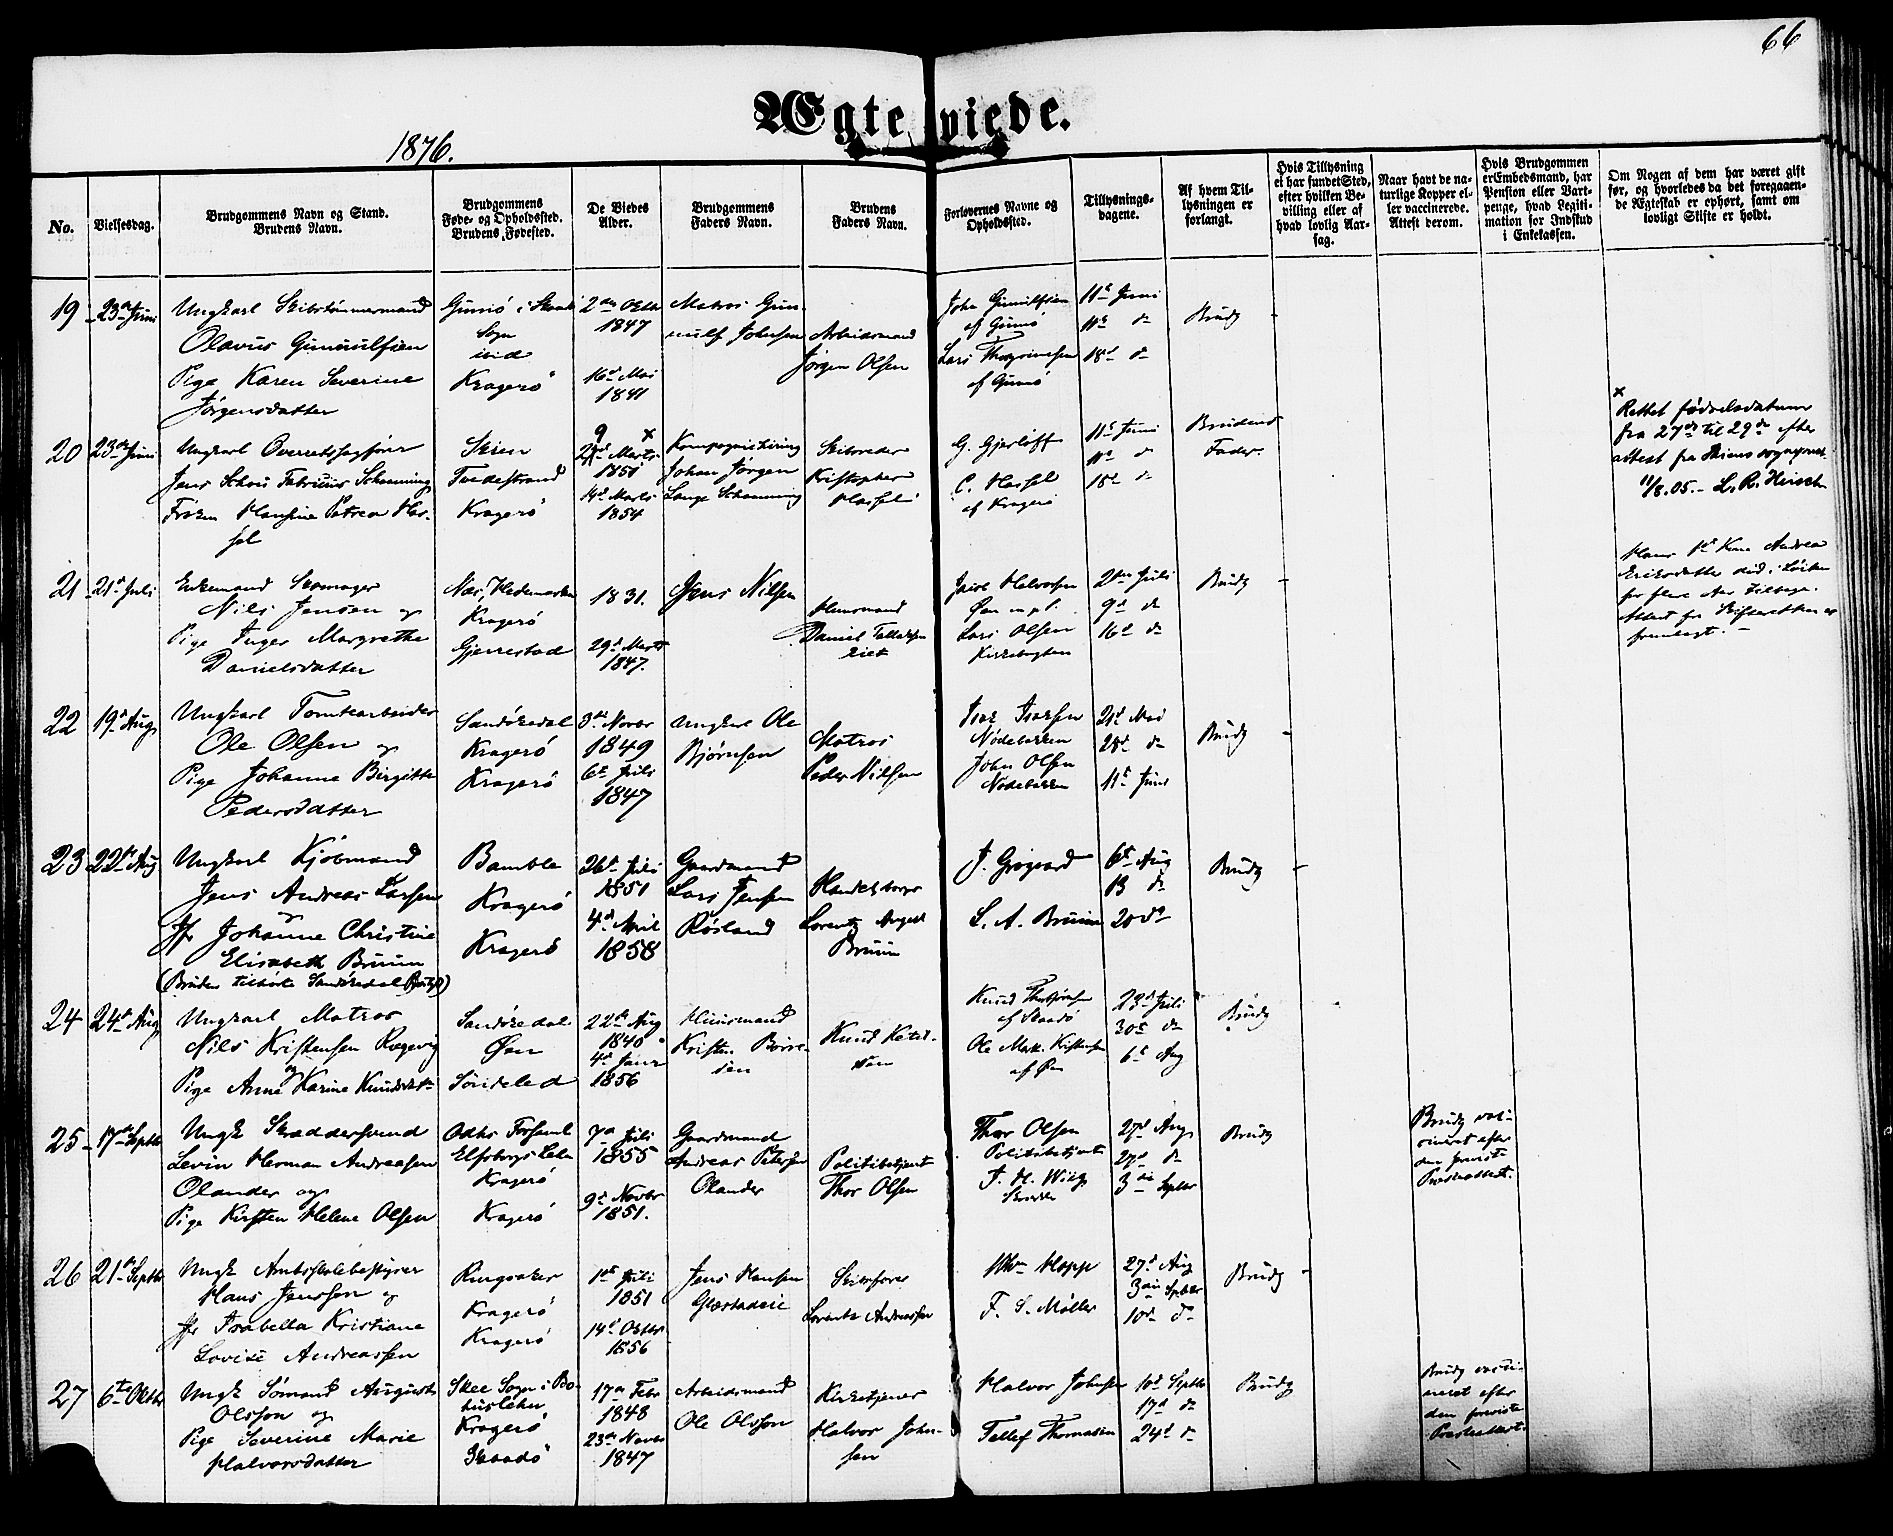 66
Ægteviede.
1876.
No.
Vielsesdag.
Brudgommens Navn og Stand.
Brudens Navn.
Brudgommens
Føde- og Opholdssted.
Brudens Fødested.
De Viedes
Alder.
Brudgommens
Faders Navn.
Brudens
Faders Navn.
Forlovernes Navne og
Opholdssted.
Tillysnings-
dagene.
Af hvem Til-
lysningen er
forlangt.
Hvis Tillysning
ei har fundet Sted,
efter hvilken Be-
villing eller af
hvad lovlig Aar-
sag.
Naar havt de na-
turlige Kopper el-
ler vaccinerede.
Attest derom.
Hvis Brudgommen
er Embedsmand, har
Pension eller Vart-
penge, hvad Legiti-
mation for Indskud
i Enkekassen.
Om Nogen af dem har været gift
før, og hvorledes da det foregaaen-
de Ægteskab er ophørt, samt om
lovligt Skifte er holdt.
19
23de Juni
Ungkarl Skibstømmermand
Olavus Gunnulfsen
Pige Karen Severine
Jørgensdatter
Sogn
Kragerø
2den Oktbr
1847
16de Mai
1841
Matros Gun-
nulf Johnsen
Arbeidsmand
Jørgen Olsen
John Gunulfsen
af Gumø
Lars
af Gumø
11te Juni
11te do
18de do
Brudg
20
23de Juni
Ungkarl Overretssagfører
Jens Schou Fabricius Schanning
Frøken Hansine Petrea Has-
sel
Skien
Tvedestrand
Kragerø
9 x
Marts
1851
14de Marts
1854
Johan Jørgen
Lange Schanning
Skibsreder
Kristopher
Hassel
G. Gjerløff
C. Hassel
af Kragerø
11te Juni
11te do
18de do
Brudens
Fader
x
Rettet fødselsdatum
fra 27de til 29de efter
attest fra Skiens sogneprest
11/8.05. –
21
21de Juli
Enkemand Skomager
Nils Jensen og
Pige Inger Margrethe
Danielsdatter
Næs, Hedemarken
Kragerø
Gjerrestad
1831.
29de Marts
1847.
Jens Nilsen
Huusmand
Daniel
Halvorsen
Lars Olsen
2den Juli
9de do
16de do
Brudg
Hans 1ste Kone Andrea
Eriksdatter død i Løiten
for flere Aar tilbage.
Attest fra Skifteretten er
fremlagt. –
22
19de Aug
Ungkarl Tomtearbeider
Ole Olsen og
Pige Johanne Birgitte
Pedersdatter
Sandøkedal
Kragerø
Kragerø
3die Novbr
1849
6te Juli
1847
Ungkarl Ole
Bjørnsen
Matros
Peder Nilsen
Isak Isaksen
John Olsen
21de Mai
28de do
11te Juni
Brudg
23
22de Aug
Ungkarl Kjøbmand
Jens Andreas Larsen
og
Jfr Johanne Christine
Elisabeth Bruun
(Bruden tilhører Sandøkedal
Bamble
Kragerø
Kragerø
26de Juli
1851
4de April
1858
Gaardmand
Lars Jensen
Røsland
Handelsborger
Lorentz August
Bruun
L. A. Bruun
6te Aug
13 do
20 do
Brudg
24
24de Aug
Ungkarl Matros
Nils Kristensen
og
Pige Anne Karine Knudsdatter
Sandøkedal
Øen
Søndeled
22de Aug
1840
4de Janr
1856
Huusmand
Kristen Børre-
sen
Knud Ketel-
sen
Knud
af Skaadø
Ole
af Øen
23de Juli
30te do
6te Aug
Brudg
25
17de Septbr
Ungk Skræddersvend
Levin Herman Andreasen
Olander og
Pige Kirsten Helene Olsen
Elfsborgs Lehn
Kragerø
Kragerø
7de Juli
1855
9de Novbr
1851.
Gaardmand
Andreas Petersen
Olander
Politibetjent
Thor Olsen
Thor Olsen
Politibetjent
27de Aug
27de do
3die Septbr
Brudg
Brudg vac-
cineret efter
den foreviste
Præsteattest.
26
21de Septbr
Ungk Amtsskolebestyrer
Hans Jenssen og
Jfr Isabella Kristiane
Lovise Andreassen
Ringsaker
Kragerø
Kragerø
1ste Juli
1851
14de Oktbr
1856
Jens Hansen
Skibsfører
Lorents Andreassen
Hopp
F. S. Møller
27de Aug
3die Septbr
10de do
Brudg
27
6te Oktbr
Ungk Sømand August
Olsson og
Pige Severine Marie
Halvorsdatter
Skee Sogn i Bo-
huslehn
Kragerø
Skaadø
17de Febr
1848
23de Novbr
1847
Arbeidsmand
Ole Olsson
Kirketjener
Halvor John-
sen
Halvor Johnsen
Tellef Thomassen
10de Septbr
17de do
24de do
Brudg
Brudg vacci-
neret efter
den foreviste
Præsteattest.